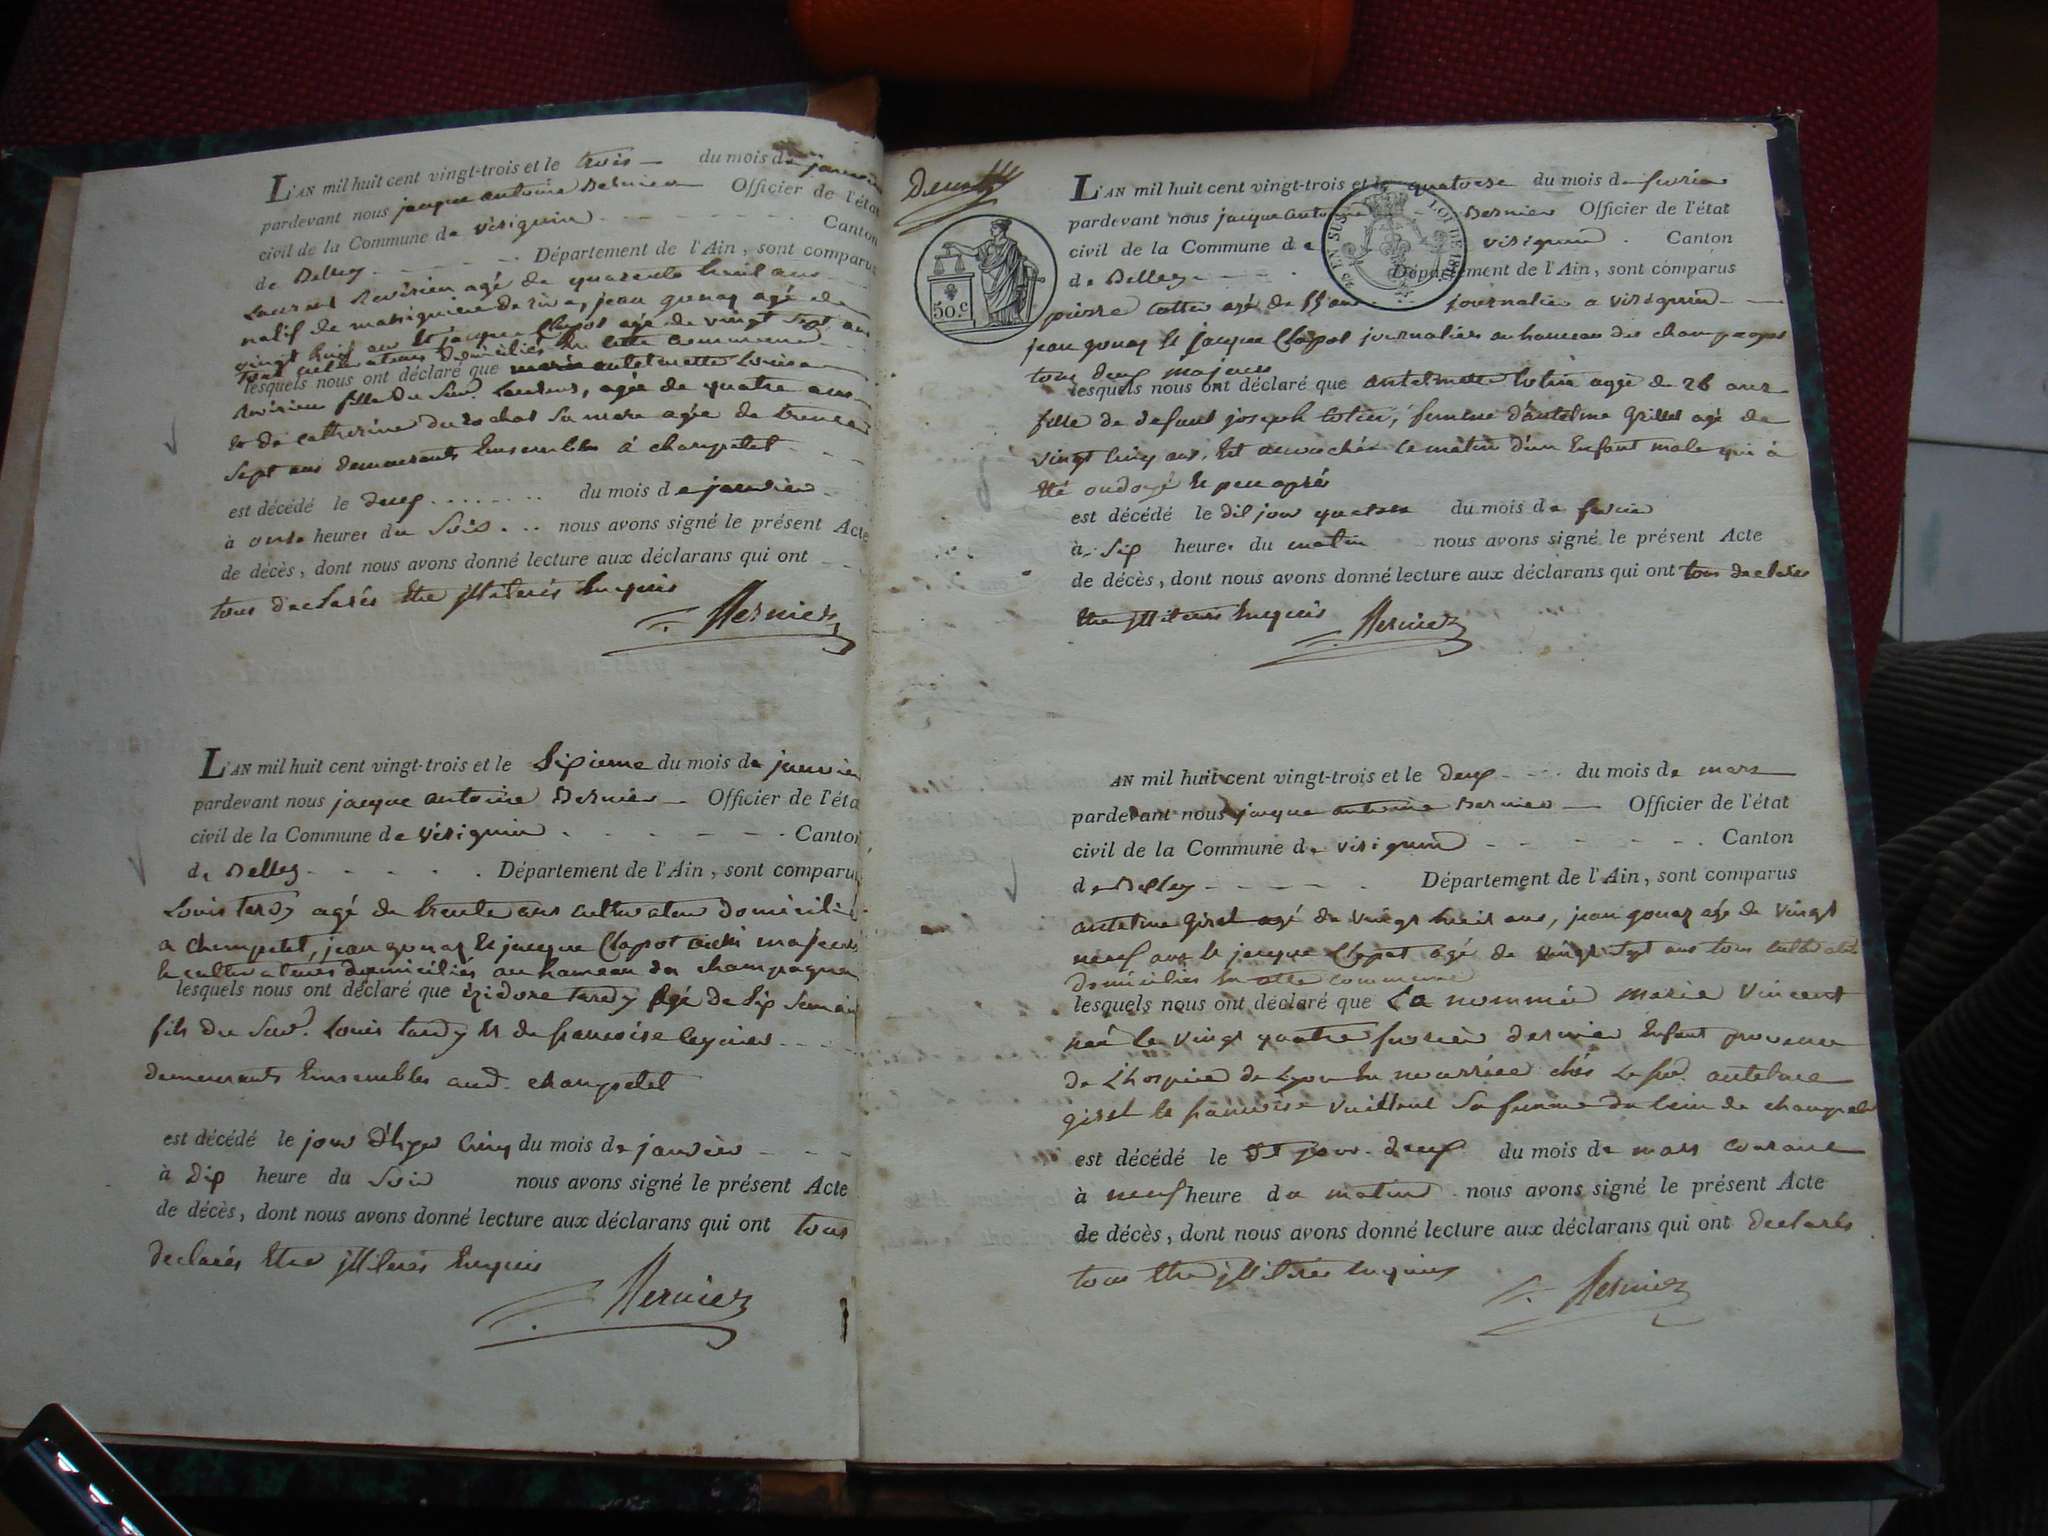 L'AN mil huit cent vingt-trois et le trois du mois de janvier
pardevant nous jacque antoine Bernier Officier de l'état
civil de la Commune de virignin Canton
de Belley Département de l'Ain, sont comparus
Laurent Revirien agé de quarente huit ans
natif de massignieu de rive, jean gonaz agé de
vingt huit ans et jacque Clapot agé de vingt sept ans
tous cultivateurs domiciliés en cette commune
lesquels nous ont déclaré que antelmette Louise
Revirien fille du Sud. Laurent, agée de quatre ans
et de catherine durochat sa mere agée de trente
sept ans demeurants Ensembles à champetel
est décédé le deux du mois de janvier
à onze heures du Soir nous avons signé le présent Acte
de décès, dont nous avons donné lecture aux déclarans qui ont
tous declarés Etre jlliterés Enquis
Bernier
L'AN mil huit cent vingt-trois et le Sixieme du mois de janvier
pardevant nous jacque antoine Bernier Officier de l'éta
civil de la Commune de virignin Canton
de Belley Département de l'Ain, sont comparu
Louis tardy agé de trente ans cultivateur domicilié
a champetel, jean gonaz et jacque Clapot aussi majeurs
et cultivateurs domiciliés au hameau de champagne
lesquels nous ont déclaré que izidore tardy agé de Six Semain
fils du Sud. Louis tardy et de francoise
demeurants Ensembles aud. champetel
est décédé le jour d'hyer Cinq du mois de janvier
à dix heure du Soir nous avons signé le présent Acte
de décès, dont nous avons donné lecture aux déclarans qui ont tous
declarés Etre jlliterés Enquis
Bernier
Deux
50.c
EN SUS LOI DE 18
L'AN mil huit cent vingt-trois et le quatorse du mois de fevrier
pardevant nous jacque antoine Bernier Officier de l'état
civil de la Commune de virignin Canton
de Belley Département de l'Ain, sont comparus
pierre cottier agé de 55 ans journalier a virignin
jean gonaz et jacque Clapot journaliers au hameau des champagnes
tous deux majeurs
lesquels nous ont déclaré que antelmette cotier aggé de 26 ans
fille de defunt joseph cotier, femme d'antelme Grillet agé de
vingt Cinq ans, Est accouchée ce matin d'un Enfant male qui à
Eté ondoyé Et peu après
est décédé le dit jour quatorse du mois de fevrier
à Six heures du matin nous avons signé le présent Acte
de décès, dont nous avons donné lecture aux déclarans qui ont tous declarés
Etre jlliterés Enquis
Bernier
AN mil huit cent vingt-trois et le deux du mois de mars
pardevant nous jacque antoine Bernier Officier de l'état
civil de la Commune de virignin Canton
de Belley Département de l'Ain, sont comparus
antelme giret agé de vingt huit ans, jean gonaz agé de vingt
neuf ans et jacque Clapot agé de vingt Sept ans tous cultivat
domiciliés En cette commune
lesquels nous ont déclaré que La nommée marie vincent
née le vingt quatre fevrier dernier Enfant provenu
de L'hospice de Lyon En nourrice chés Le sud. antelme
giret et francoise vuillerot Sa femme du lieu de champetel
est décédé le dit jour deux du mois de mars courant
à neuf heure du matin nous avons signé le présent Acte
de décès, dont nous avons donné lecture aux déclarans qui ont declarés
tous Etre jlliterés Enquis
Bernier